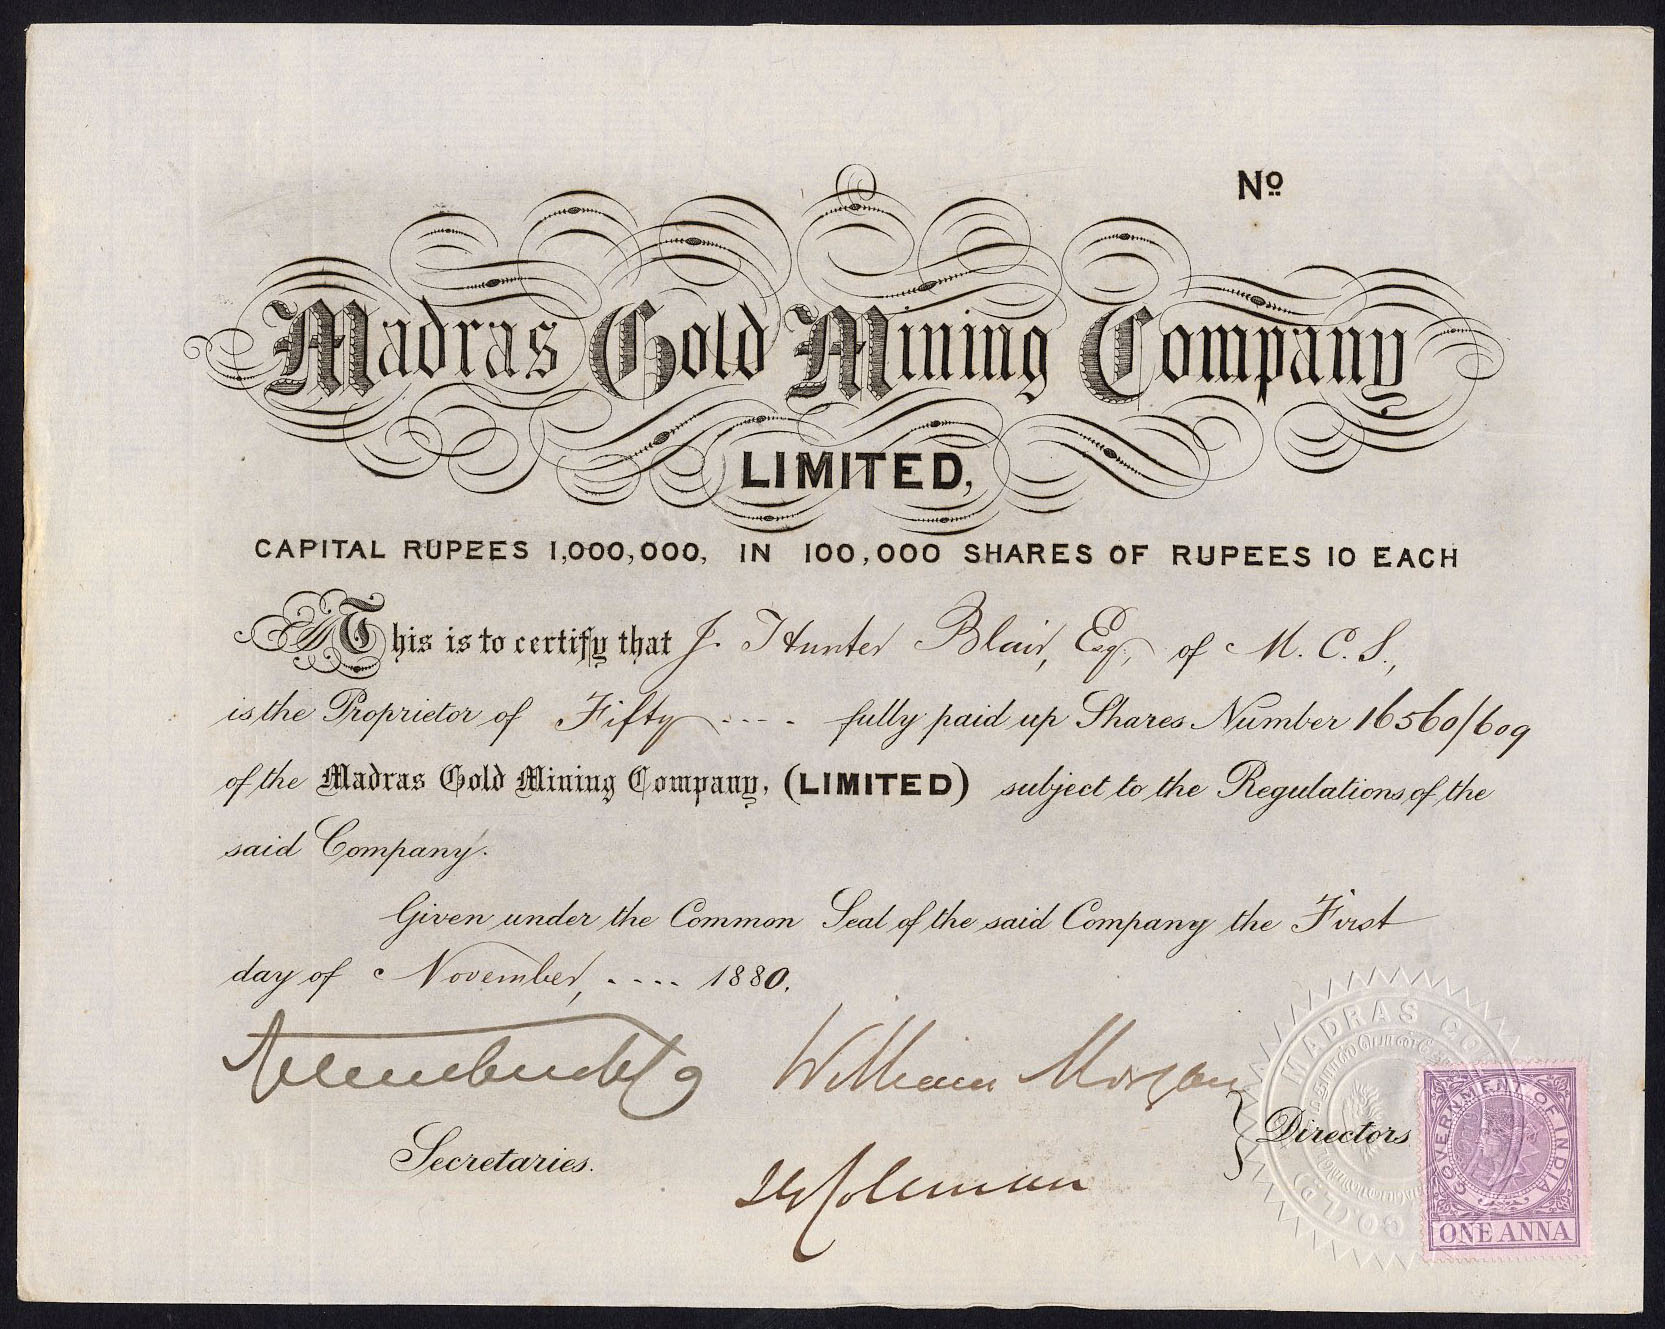 No
Madras Gold Mining Company
LIMITED,
CAPITAL RUPEES 1,000,000, IN 100,000 SHARES OF RUPEES 10 EACH
This is to certify that J. Hunter Blair, Esq., of M. C. S.,
is the Proprietor of Fifty .... fully paid up Shares Number 16560/609
of the Madras Gold Mining Company, (LIMITED) subject to the Regulations of the
said Company.
Given under the Common Seal of the said Company the First
day of November, .... 1880.
William Morgan
Secretaries.
Directors
Coleman
MADRAS GOLD
GOVERNMENT OF INDIA
ONE ANNA